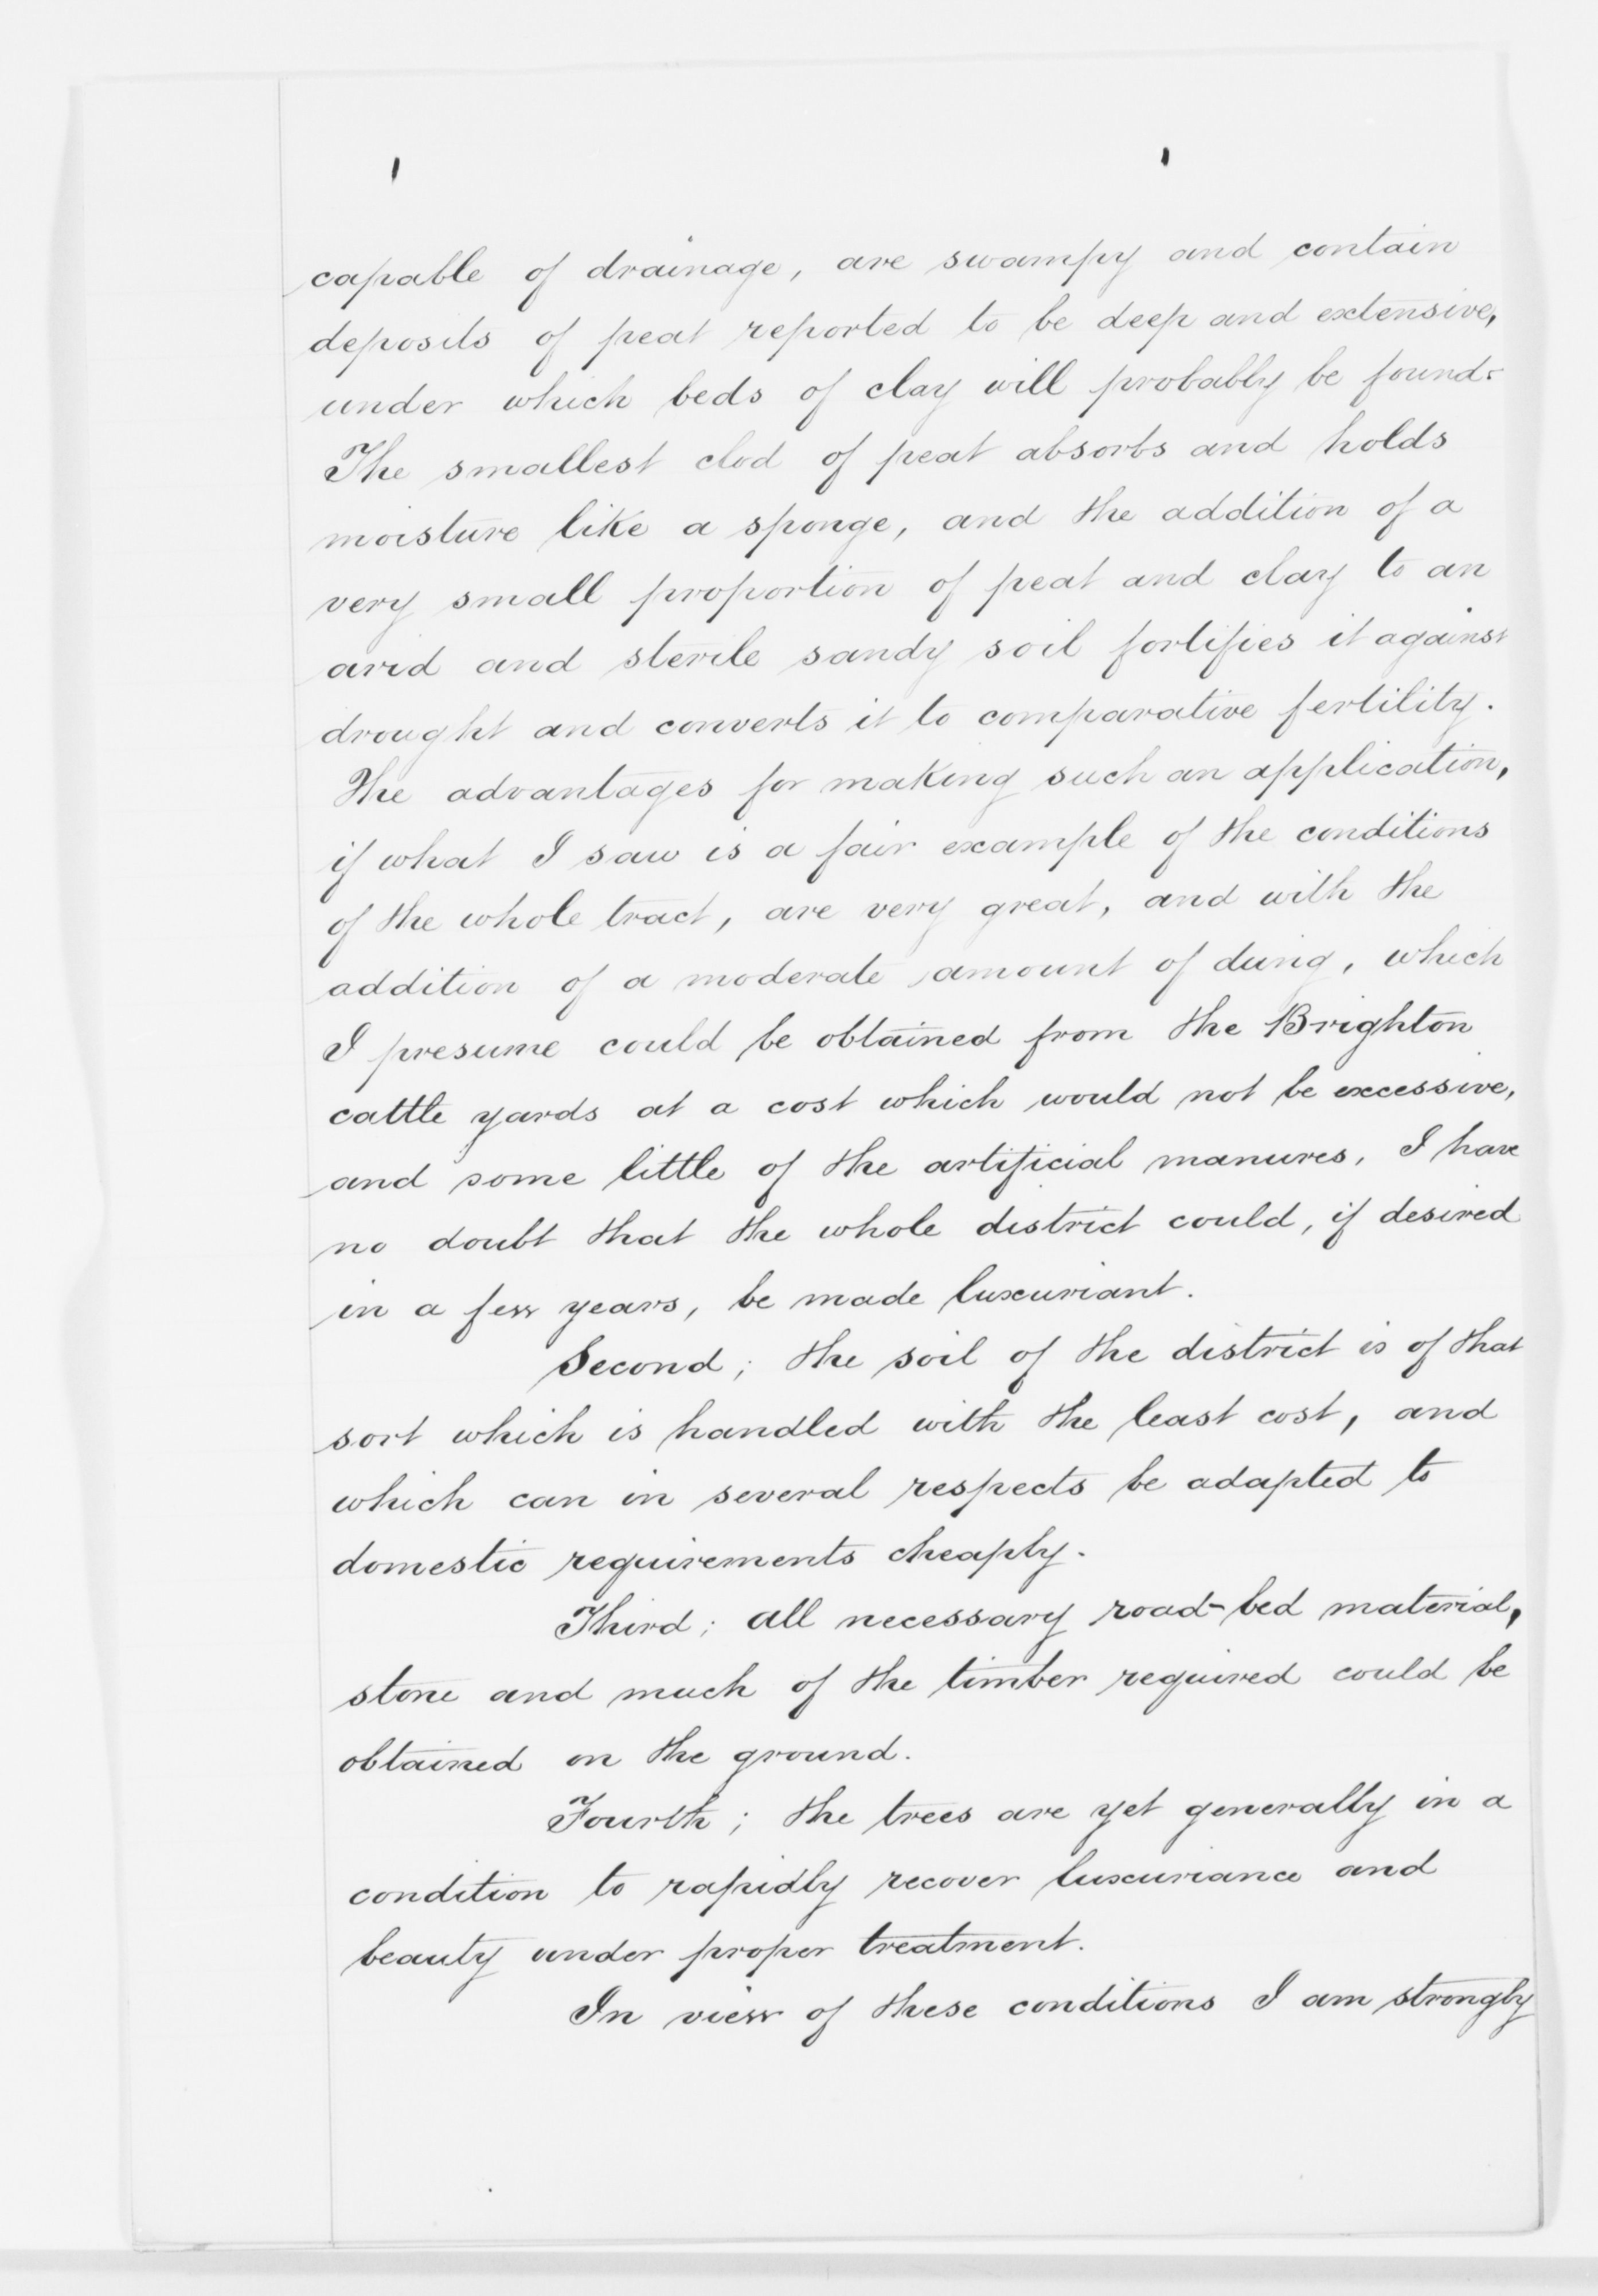 capable of drainage, are swampy and contain
deposits of peat reported to be deep and extensive,
under which beds of clay will probably be found.
The smallest clod of peat absorbs and holds
moisture like a sponge, and the addition of a
very small proportion of peat and clay to an
arid and sterile sandy soil fortifies it against
drought and converts it to comparative fertility.
The advantages for making such an application,
if what I saw is a fair example of the conditions
of the whole tract, are very great, and with the
addition of a moderate amount of dung, which
I presume could be obtained from the Brighton
cattle yards at a cost which would not be excessive,
and some little of the artificial manures, I have
no doubt that the whole district could, if desired
in a few years, be made luxuriant.
Second; the soil of the district is of that
sort which is handled with the least cost, and
which can in several respects be adapted to
domestic requirements cheaply.
Third; all necessary road-bed material,
stone and much of the timber required could be
obtained on the ground.
Fourth; the trees are yet generally in a
condition to rapidly recover luxuriance and
beauty under proper treatment.
In view of these conditions I am strongly